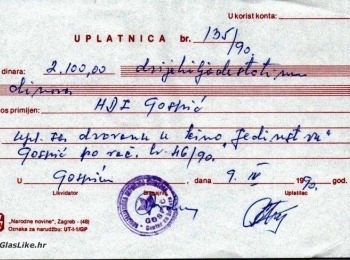 U korist konta:
UPLATNICA br. 135/90.
dinara: 2.100,00 dvijehiljadestotinu
dinara
os primljen: HDZ Gospić
upl. za dvoranu u kino "Jedinstvu"
Gospić po rač. br. 46/90.
U Gospiću, dana 9. IV 1990.
Likvidator Uplatilac
GOSPIĆ
"Narodne novine", Zagreb - (48)
Oznaka za narudžbu: UT-1-1/GP
GlasLike.hr